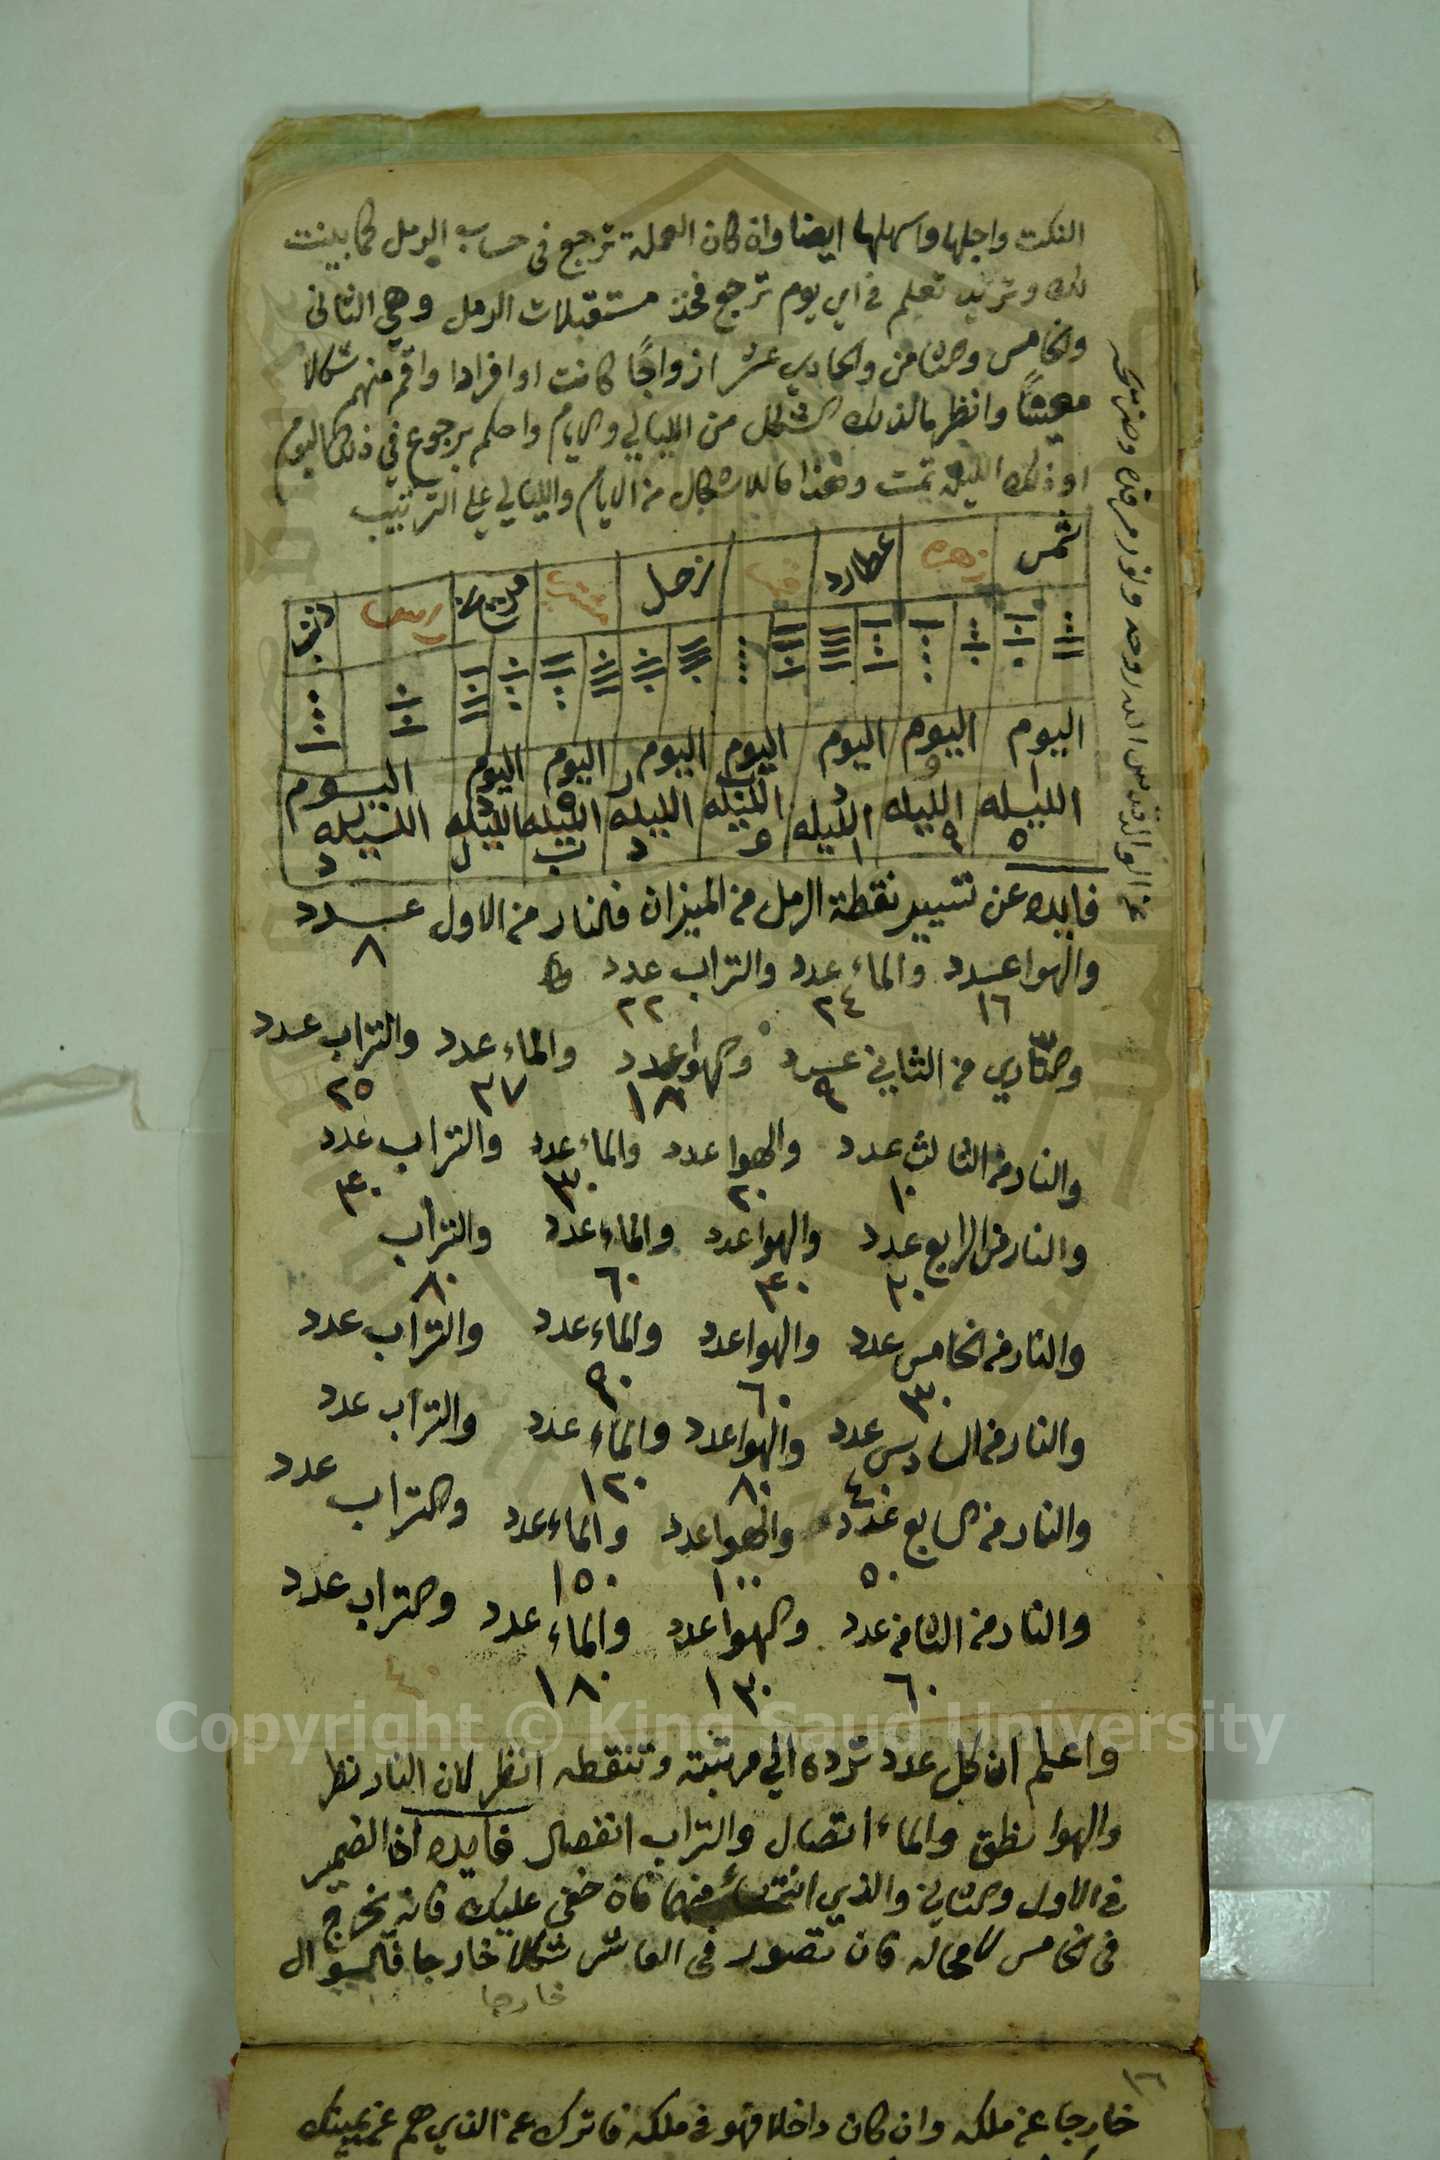 النكت واجلها واسهلها ايضا وان كان العملة ترجع في حساب الرمل كما بينت
لك وتريد تعلم في اي يوم ترجع فخذ مستقبلات الرمل وهي الثاني
والخامس والثامن والحادي عشر ازواجًا كانت او افرادا واقم منهم شكلا
معينًا وانظر مالذلك الشكل من الليالي والايام واحكم برجوع في ذلك اليوم
او ذلك الليلة تمت وهذا ما للاشكال من الايام والليالي علي الترتيب
شمس زهره عطارد قمر زحل مشتري مريخ راس ذنب
اليوم اليوم اليوم اليوم اليوم اليوم اليوم اليوم
ا و د ب ر ه د
الليله الليله الليله الليله الليله الليله الليله الليله
٥ ٩ ١ و د ب د
فايده عن تسيير نقطة الرمل من الميزان فالنار من الاول عدد
٨
والهوا عدد والماء عدد والتراب عدد
١٦ ٢٤ ٢٢
والناري من الثاني عدد والهوا عدد والماء عدد والتراب عدد
٩ ١٨ ٢٧ ٢٥
والنار من الثالث عدد والهوا عدد والماء عدد والتراب عدد
١٠ ٢٠ ٣٠ ٤٠
والنار من الرابع عدد والهوا عدد والماء عدد والتراب
٢٠ ٤٠ ٦٠ ٨٠
والنار من الخامس عدد والهوا عدد والماء عدد والتراب عدد
٣٠ ٦٠ ٩٠
والنار من السادس عدد والهوا عدد والماء عدد والتراب عدد
٤٠ ٨٠ ١٢٠
والنار من السابع عدد والهوا عدد والماء عدد والتراب عدد
٥٠ ١٠٠ ١٥٠
والنار من الثامن عدد والهوا عدد والماء عدد والتراب عدد
٦٠ ١٣٠ ١٨٠
Copyright © King Saud University
واعلم ان كل عدد ترده الي مرتبته وتنقطه انظر لان النار نظر
والهوا نطق والماء اتصال والتراب انفصال فايده اذا الضمير
في الاول والثاني والذي انتشأ منهما فان خفي عليك فانه يخرج
في الخامس لا محاله فان تصور في العاشر شكلا خارجا فالسوال
خارجا
١٦
خارجا عن ملكه وان كان داخلا فهو في ملكه فاترك عن الذي هم عن يمينك